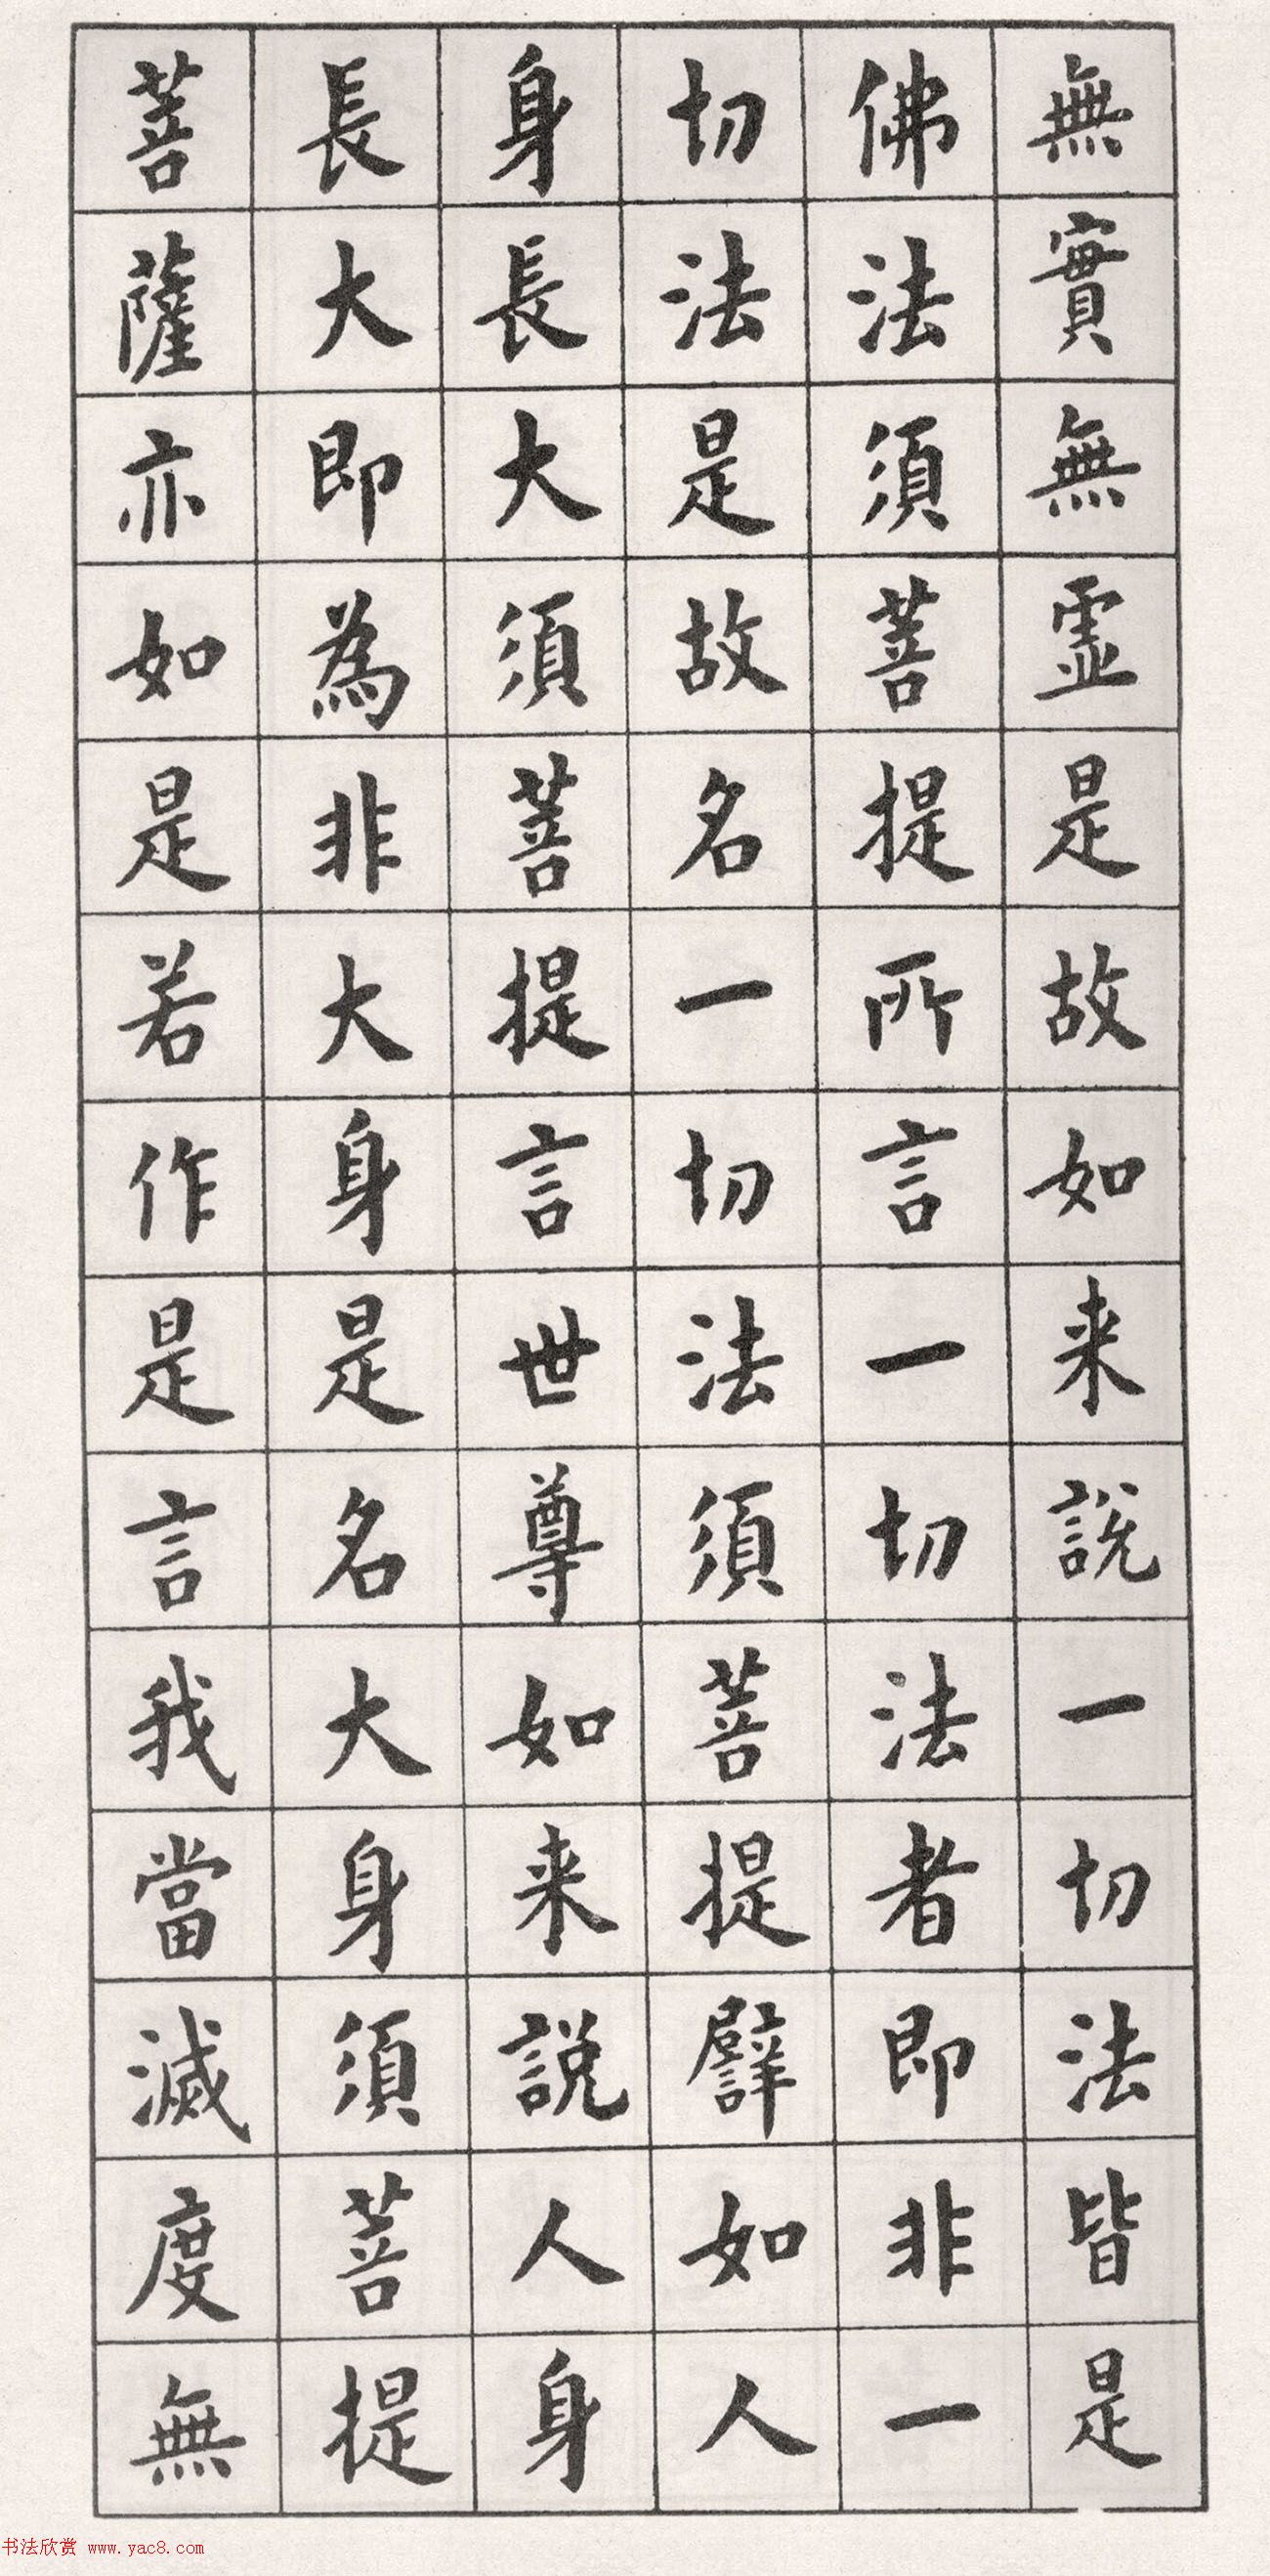 無實無虛是故如来說一切法皆是
佛法須菩提所言一切法者即非一
切法是故名一切法須菩提譬如人
身長大須菩提言世尊如来說人身
長大即為非大身是名大身須菩提
菩薩亦如是若作是言我當滅度無
书法欣赏 www.yac8.com